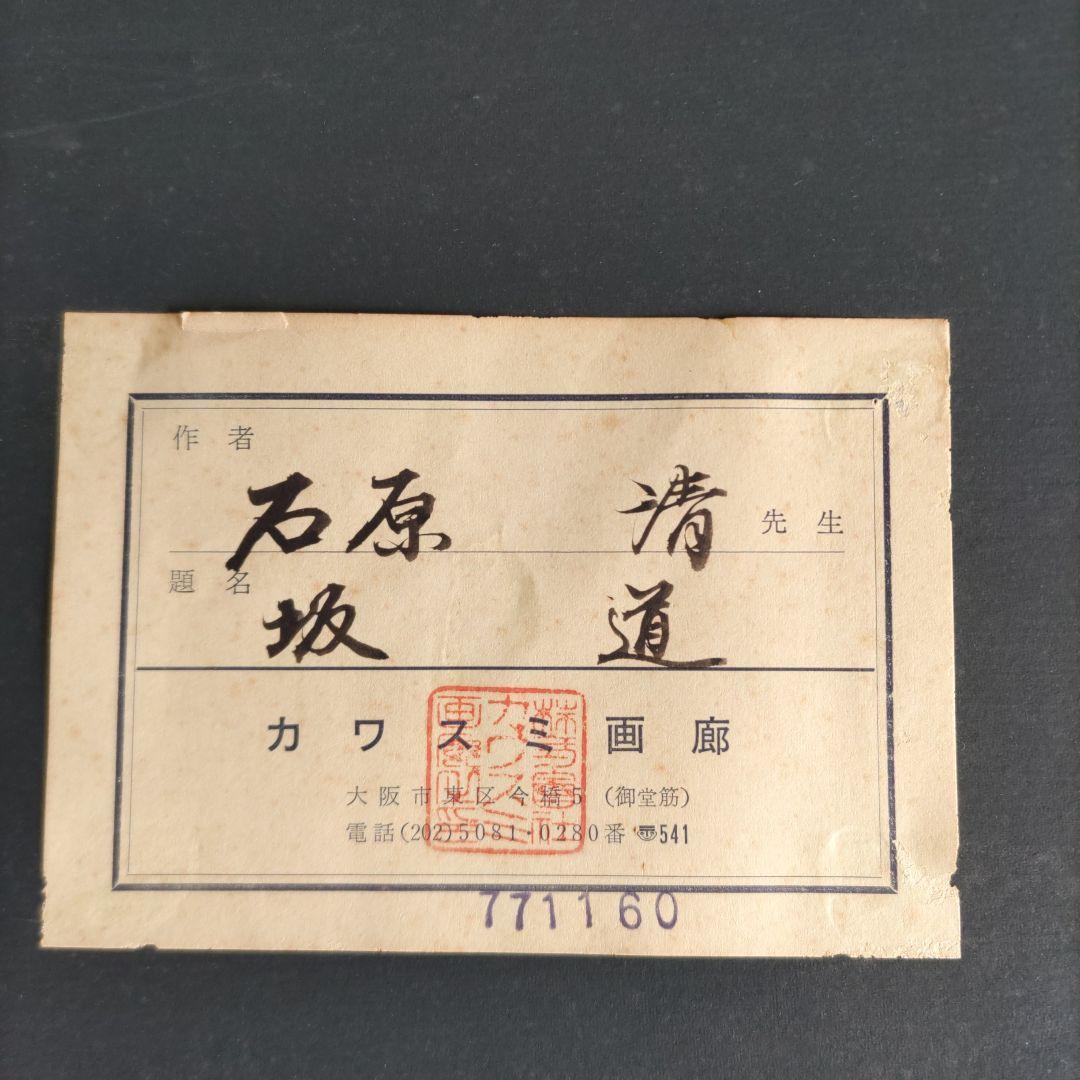 作者
石原 清 先生
題名
坂 道
カワスミ画廊
大阪市東区今橋5 (御堂筋)
電話(202)5081・0280番 〠541
771160